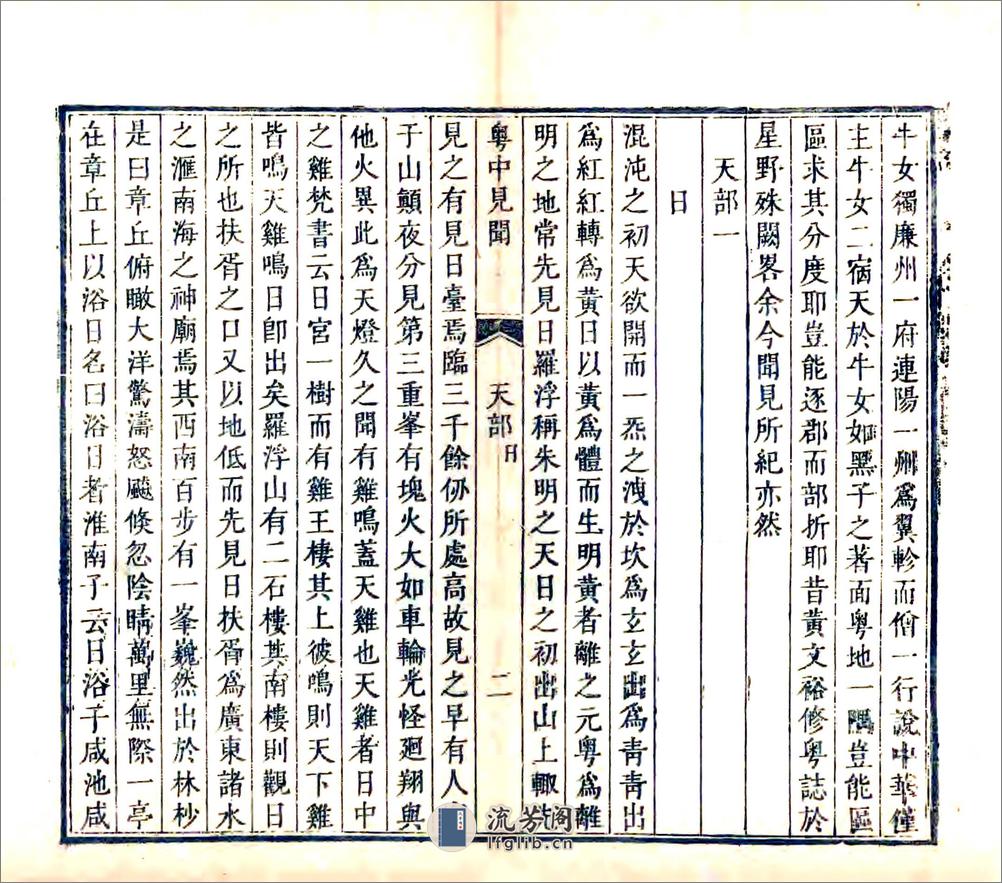 牛女獨廉州一府連陽一州爲翼軫而僧一行說中華僅
主牛女二宿天於牛女如黑子之著面粤地一隅豈能區
區求其分度耶豈能逐郡而部折耶昔黄文裕修粤誌於
星野殊闕畧余今聞見所紀亦然
天部一
日
混沌之初天欲開而一炁之洩於坎爲玄玄出爲靑靑出
爲紅紅轉爲黄日以黄爲體而生明黄者離之元粤爲離
明之地常先見日羅浮稱朱明之天日之初出山上輙
粤中見聞 天部日 二
見之有見日臺焉臨三千餘仞所處高故見之早有人
于山顚夜分見第三重峯有塊火大如車輪光怪廻翔與
他火異此爲天燈久之聞有雞鳴蓋天雞也天雞者日中
之雞梵書云日宮一樹而有雞王棲其上彼鳴則天下雞
皆鳴天雞鳴日卽出矣羅浮山有二石樓其南樓則觀日
之所也扶胥之口又以地低而先見日扶胥爲廣東諸水
之滙南海之神廟焉其西南百步有一峯巍然出於林杪
是曰章丘俯瞰大洋驚濤怒飈倏忽陰晴萬里無際一亭
在章丘上以浴日名曰浴日者淮南子云日浴于咸池咸
流芳阁
lfglib.cn